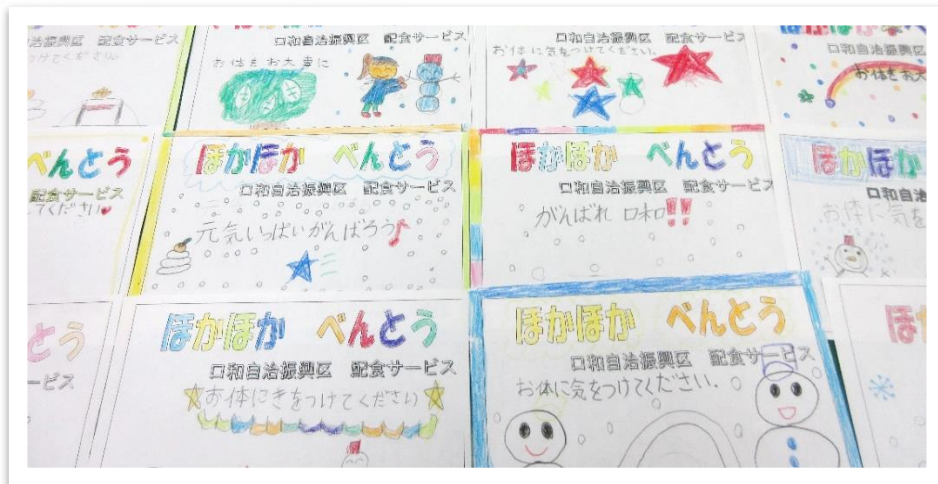 口和自治振興区 配食サービス
お体をお大事に
口和自治振興区 配食サービス
お体に気をつけてください。
べんとう
配食サービス
てください
ほかほか べんとう
口和自治振興区 配食サービス
元気いっぱいがんばろう♪
ほかほか べんとう
口和自治振興区 配食サービス
がんばれ 口和!!
ほかほか
口和自治
お体に気を
とう
ービス
ほかほか べんとう
口和自治振興区 配食サービス
お体にきをつけてください
ほかほか べんとう
口和自治振興区 配食サービス
お体に気をつけてください.
ほ